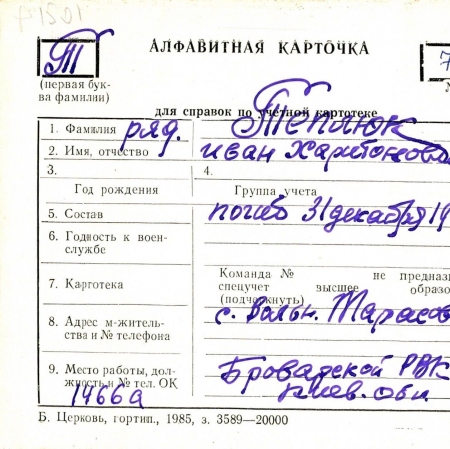 P1501
Т АЛФАВИТНАЯ КАРТОЧКА 7
(первая бук-
ва фамилии)
для справок по учетной картотеке
1. Фамилия ряд. Теплюк
2. Имя, отчество Иван Харитонови
3. 4.
Год рождения Группа учета
5. Состав погиб 31 декабря 19
6. Годность к воен-
службе
7. Картотека Команда № не предназ
спецучет высшее образо
(подчеркнуть)
8. Адрес м-житель-
ства и № телефона с. Вольн. Тарасов
9. Место работы, дол-
жность и № тел. ОК Броварской РВК
1466а Киев. обл.
Б. Церковь, гортип., 1985, з. 3589—20000